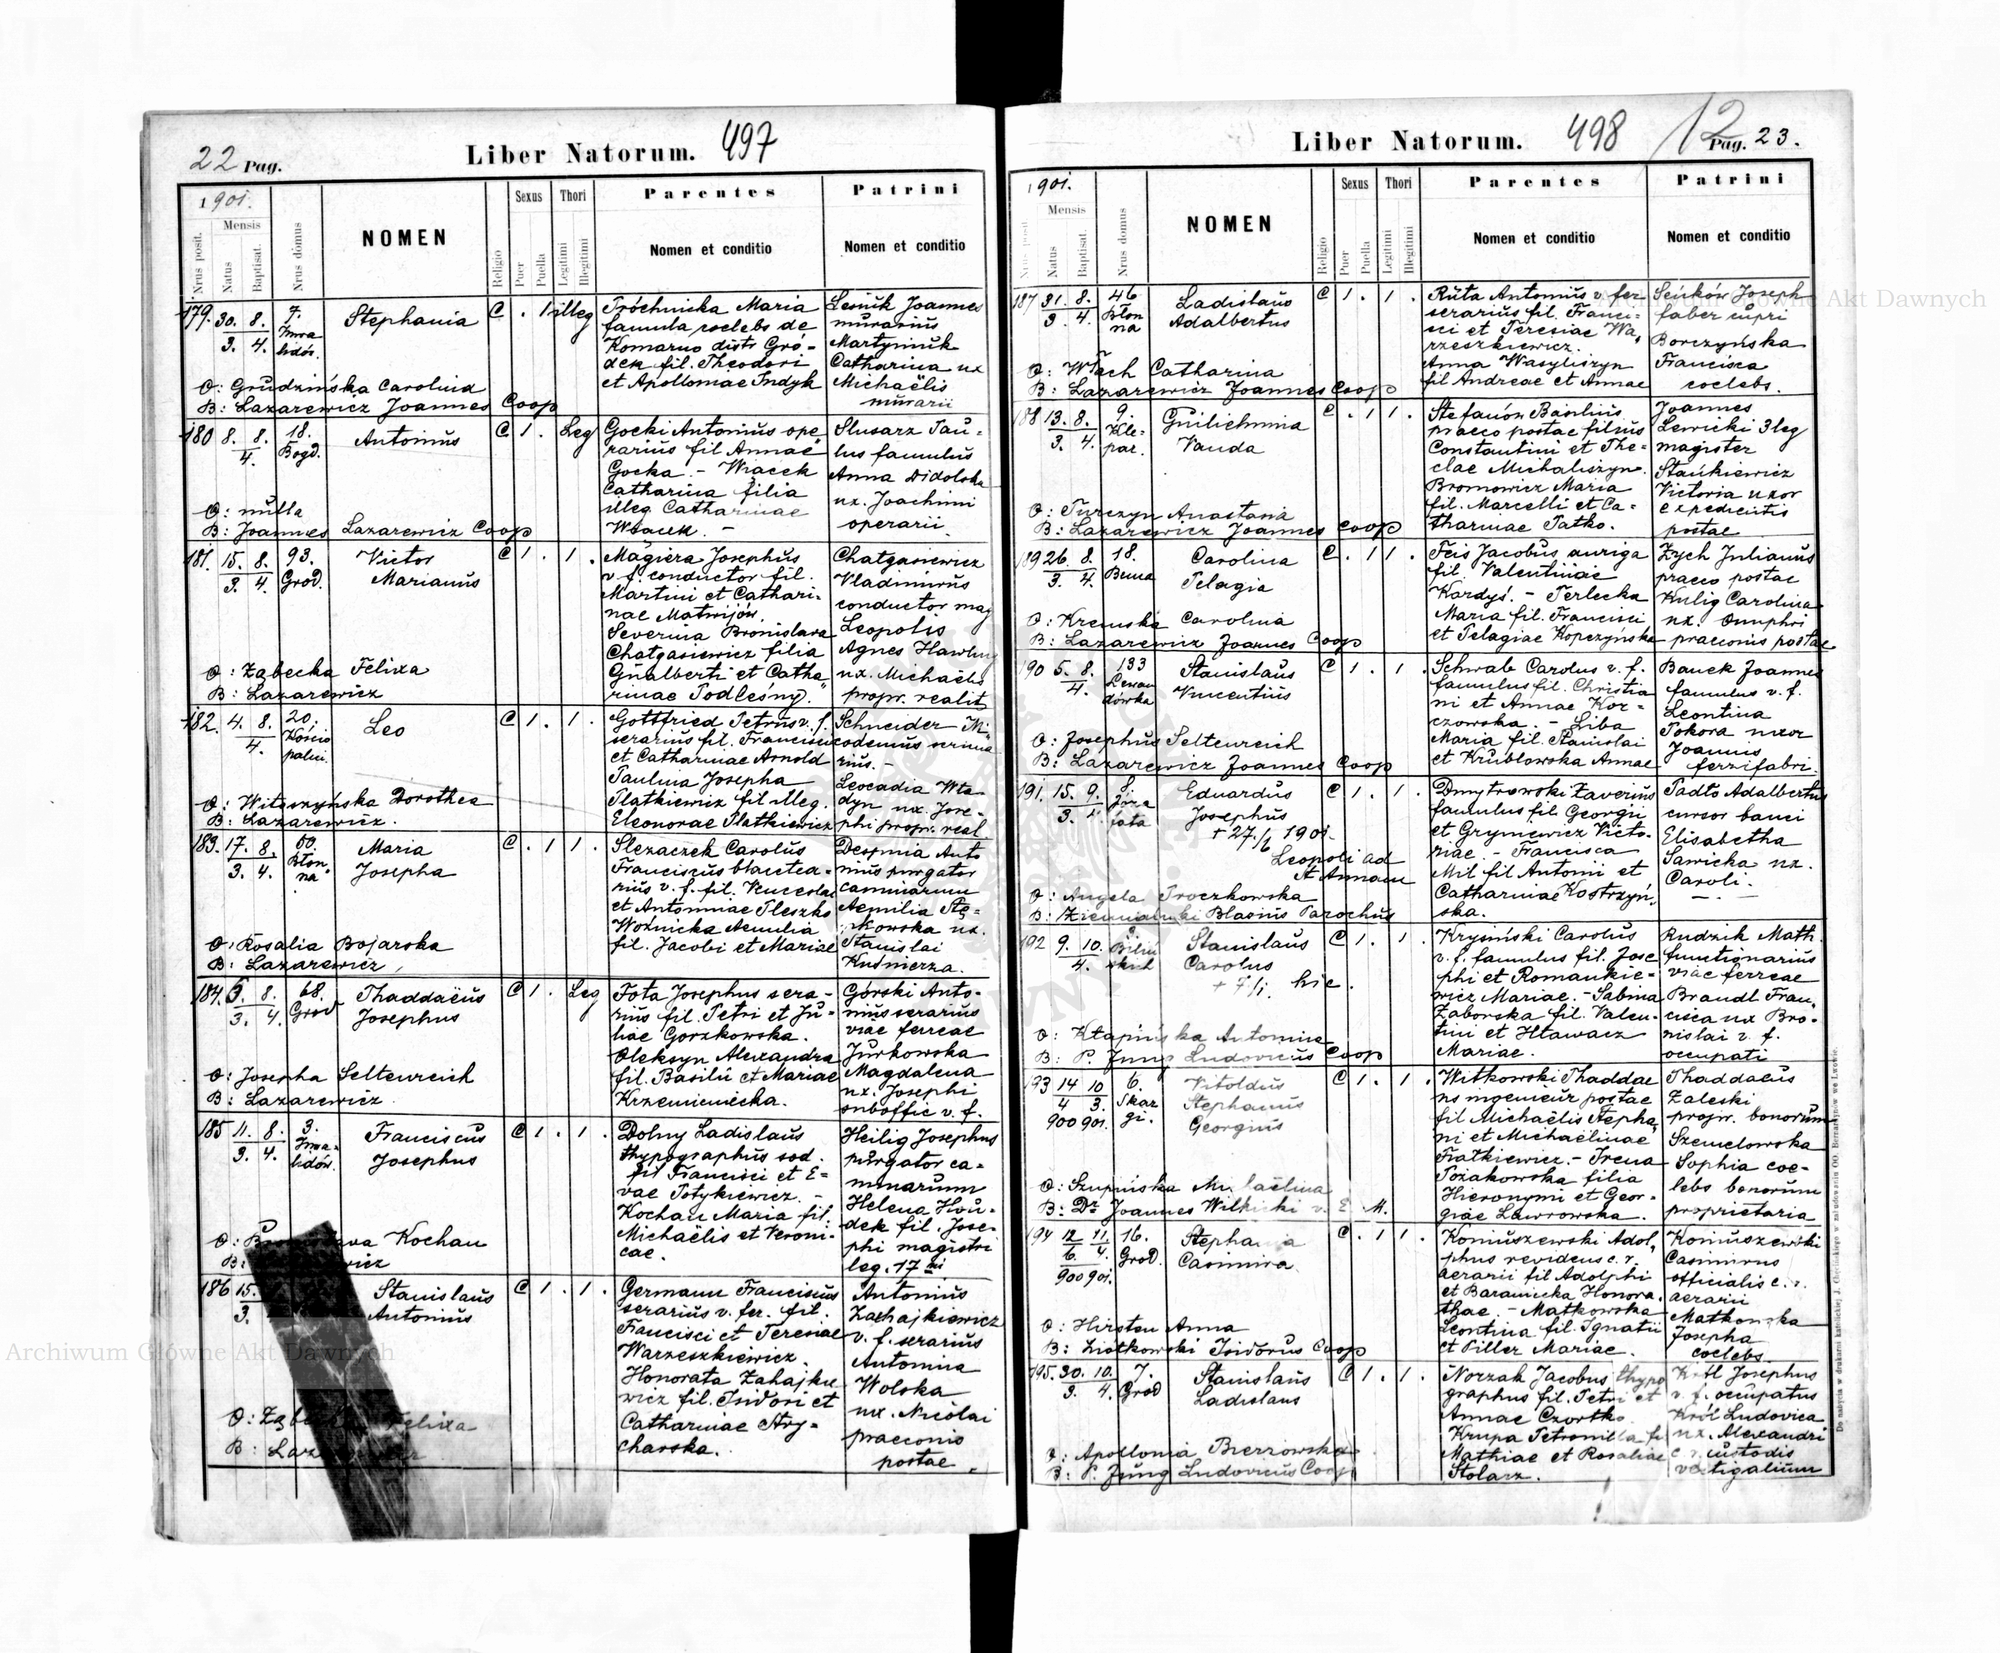 22 Pag.
Liber Natorum. 497
1901.
Nrus posit.
Mensis
Natus
Baptisat.
Nrus domus
NOMEN
Religio
Sexus
Puer
Puella
Thori
Legitimi
Illegitimi
Parentes
Nomen et conditio
Patrini
Nomen et conditio
179. 30. 8. 7. Stephania C . 1 illeg
3. 4.
Próchnicka Maria
famula coelebs de
Komarno distr Gró-
dek fil. Theodori
et Apolloniae Indyk
Lesiuk Joannes
murarius
Martyniuk
Catharina ux
Michaëlis
murarii
O: Grudzińska Carolina
B: Lazarewicz Joannes Coop
180 8. 8. 18. Antonius C 1 . Leg
4. Bogd.
Gocki Antonius ope
rarius fil Annae
Gocka. - Wracek
Catharina filia
illeg Catharinae
Slusarz Pau-
lus famulus
Anna Didolska
ux. Joachimi
operarii
O: nulla
B: Joannes Lazarewicz Coop
181. 15. 8. 93. Victor C 1 . 1 .
3. 4. Grod. Marianus
Magiera Josephus
v. f. conductor fil.
Martini et Cathari-
nae Matwijów.
Severina Bronislava
Chatgasiewicz filia
Gualberti et Catha
rinae Podleśny.
Chatgasiewicz
Vladimirus
conductor mag
Leopolis
Agnes Hawling
ux. Michaëlis
propr. realit
O: Ząbecka Felixa
B: Lazarewicz
182. 4. 8. 20. Leo C 1 . 1 .
4.
Gottfried Petrus v. f.
serarius fil. Francisci
et Catharinae Arnold
Paulina Josepha
Platkiewicz fil illeg.
Eleonorae Platkiewicz
Schneider Ni-
codemus serina
rius. -
Leocadia Wła-
dyn ux. Jose-
phi propr. real
O: Witoszyńska Dorothea
B: Lazarewicz.
183. 17. 8. 60. Maria C . 1 1 .
3. 4. Błon- Josepha
na
Slezaczek Carolus
Franciscus
rius v. f. fil.
et Antoninae Pleszko
Woźnicka Aemilia
fil. Jacobi et Mariae
Anto
nius purgator
caminarum
Aemilia Stę-
pkowska ux.
Stanislai
Kuśnierza.
O: Rosalia Bojarska
B: Lazarewicz
184. 5. 8. 68. Thaddaëus C 1 . Leg
3. 4. Grod Josephus
Fota Josephus sera-
rius fil. Petri et Ju-
liae Gorzkowska.
Oleksyn Alexandra
fil. Basilii et Mariae
Krzemieniecka.
Górski Anto-
nius serarius
viae ferreae
Jurkowska
Magdalena
ux. Josephi
suboffic v. f.
O: Josepha Seltenreich
B: Lazarewicz
185 11. 8. 3. Franciscus C 1 . 1 .
3. 4. Josephus
Dolny Ladislaus
thypographus sod.
fil Francisci et E-
vae Potykiewicz. -
Kochan Maria fil.
Michaëlis et Veroni-
cae.
Heilig Josephus
purgator ca-
minarum
Helena
dek fil. Jose-
phi magistri
leg. 17 mi
O: Kochan
186 15. Stanislaus C 1 . 1 .
3. Antonius
Germann Franciscus
serarius v. fer. fil.
Francisci et Teresiae
Warzeszkiewicz.
Honorata Zahajkie
wicz fil. Isidori et
Catharinae Stry-
charska.
Antonius
Zachajkiewicz
v. f. serarius
Antonina
Wolska
ux. Nicolai
praeconis
postae.
Liber Natorum. 498 12 Pag. 23.
1901.
Mensis
Natus
Baptisat.
Nrus domus
NOMEN
Religio
Sexus
Puer
Puella
Thori
Legitimi
Illegitimi
Parentes
Nomen et conditio
Patrini
Nomen et conditio
187 31. 8. 46 Ladislaus C 1 . 1 .
3. 4. Błon Adalbertus
na
Ruta Antonius v. fer
serarius fil. Franci-
sci et Teresiae Wa-
rzeszkiewicz.
Anna Wasyliszyn
fil Andreae et Annae
Seńków Joseph
faber cupri
Borczyńska
Francisca
coelebs.
O: Wlach Catharina
B: Lazarewicz Joannes Coop
188 13. 8. 9. C . 1 1 .
3. 4. Kle- Vanda
par.
Stefanów Basilius
praeco postae filius
Constantini et The-
clae Michaliszyn.
Bromowicz Maria
fil. Marcelli et Ca-
tharinae Patko.
Joannes
Lewicki 3 leg
magister
Stankiewicz
Victoria uxor
expedientis
postae
O: Turczyn Anastasia
B: Lazarewicz Joannes Coop
189 26. 8. 18. Carolina C . 1 1 .
3. 4. Bema Pelagia
Feis Jacobus auriga
fil. Valentinae
Kordyś. - Perlecka
Maria fil. Francisci
et Pelagiae Kopczyńska
Zych Julianus
praeco postae
Kulig Carolina
ux. Onuphri
praeconis postae
O: Kremska Carolina
B: Lazarewicz Joannes Coop
190 5. 8. 133 Stanislaus C 1 . 1 .
4. Lewan Vincentius
dówka
Schwab Carolus v. f.
famulus fil. Christia
ni et Annae Kor-
czowska. - Liba
Maria fil. Stanislai
et Krublowska Annae
Banek Joannes
famulus v. f.
Leontina
Pokora uxor
Joannis
ferrifabri.
O: Josephus Seltenreich
B: Lazarewicz Joannes Coop
191. 15. 9. Eduardus C 1 . 1 .
3. 4. Josephus
+ 27./6 1901.
Leopoli ad
St Annam
Dmytrowski Xaverius
famulus fil Georgii
et Grynewicz Victo-
riae. - Francisca
Mil fil Antonii et
Catharinae Kostrzyń-
ska.
Padło Adalbertus
cursor banci
Elisabetha
Sawicka ux.
Caroli.
O: Angela Troczkowska
B: Ziemiański Blasius Parochus
192 9. 10. Stanislaus C 1 . 1 .
4. Carolus
hic.
Krysiński Carolus
v. f. famulus fil. Jose
phi et Romankie-
wicz Mariae. - Sabina
Zaborska fil. Valen-
tini et Hlawacz
Mariae.
Rudzik Math.
functionarius
viae ferreae
Brandl Fran-
cisca ux Bro-
nislai v. f.
occupati
O: Kłapińska Antonina
B: P. Jung Ludovicus Coop
193 14 10 6. Vitoldus C 1 . 1 .
4 3. Skar Stephanus
900 901. gi. Georgius
Witkowski Thaddae
us ingenieur postae
fil Michaëlis Stepha-
ni et Michaëlinae
Fiałkiewicz. - Irena
Pożakowska filia
Hieronymi et Geor-
giae Lawrowska.
Thaddaeus
Zaleski
propr. bonorum
Szemelowska
Sophia coe-
lebs bonorum
proprietaria
O: Szupińska Michaëlina
B: Dr Joannes Wilkicki v. E. M.
194 12 11. 16. Stephania C . 1 1 .
6. 4. Grod. Casimira.
900 901.
Koniuszewski Adol-
phus revidens c. r.
aerarii fil Adolphi
et Baraniecka Honora-
thae. - Matkowska
Leontina fil. Ignatii
et Piller Mariae.
Koniuszewski
Casimirus
officialis c. r.
aerarii
Matkowska
Josepha
coelebs
O: Hirsten Anna
B: Ziotkowski Isidorus Coop
195. 30. 10. 7. Stanislaus C 1 . 1 .
3. 4. Grod Ladislaus
Norzak Jacobus thypo
graphus fil. Petri et
Annae Czortko.
Krupa Petronilla fil
Mathiae et Rosaliae
Stolarz.
Josephus
v. f. occupatus
Król Ludovica
ux. Alexandri
c. r. custodis
vectigalium
O: Apollonia Brezowska
B: P. Jung Ludovicus Coop
Do nabycia w drukarni katolickiej J. Chęcińskiego w zabudowaniu OO. Bernardynów we Lwowie.
Archiwum Główne Akt Dawnych
Archiwum Główne Akt Dawnych